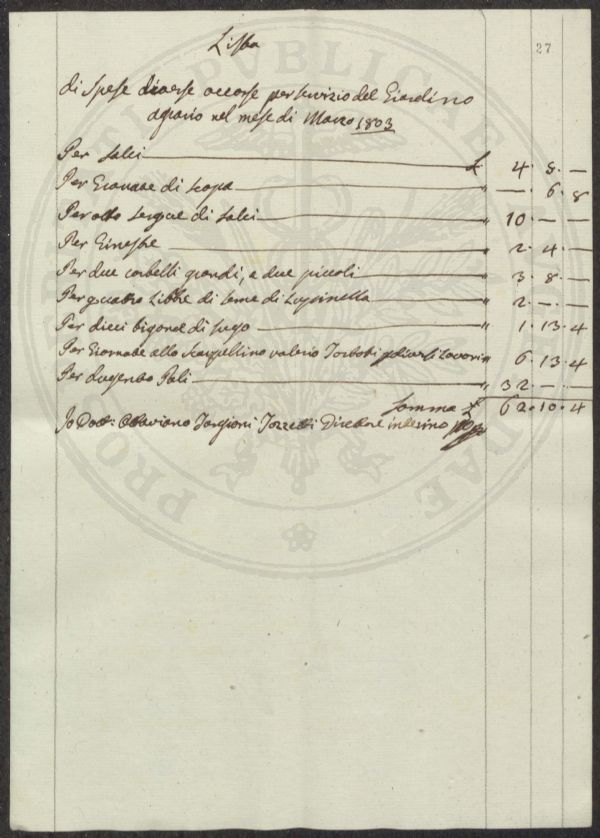 27
Lista
di Spese diverse occorse per servizio del Giardino
agrario nel mese di Marzo 1803
Per Salci £ 4. 8. —
Per Granate di Scopa " —. 6. 8
Per otto Serque di Salci " 10. —. —
Per Ginestre " 2. 4. —
Per due corbelli grandi, e due piccoli " 3. 8. —
Per quattro Libbre di Seme di Lupinella " 2. —. —
Per dieci bigonce di sugo " 1. 13. 4
Per Giornate allo Scarpellino Valerio p diversi Lavori " 6. 13. 4
Per Dugento Pali " 32. —. —
Somma £ 62. 10. 4
Io Dott: Ottaviano Targioni Tozzetti Direttore interino